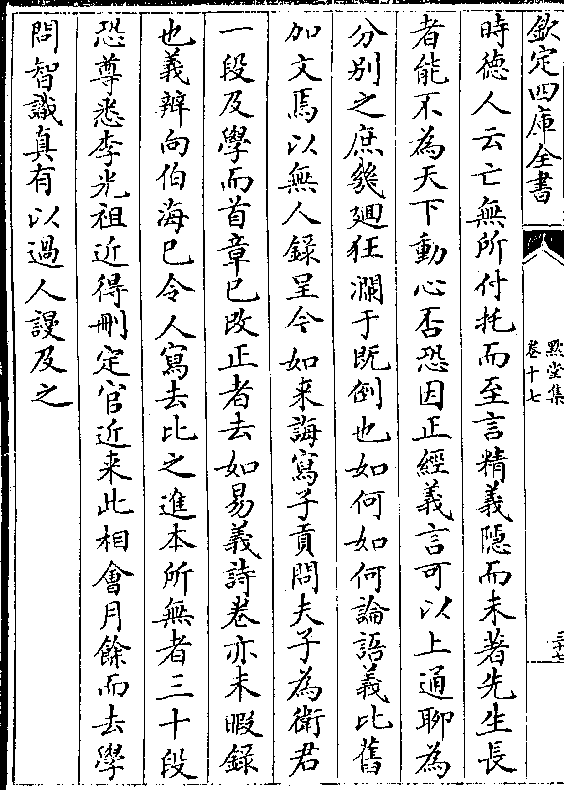 欽定四庫全書
默堂集
卷十七
三十七
時徳人云亡無所付托而至言精義隠而未著先生長
者能不為天下動心否恐因正經義言可以上通聊為
分别之庶㡬廻狂瀾于既倒也如何如何論語義比舊
加文焉以無人録呈今如来誨寫子貢問夫子為衛君
一段及學而首章已改正者去如易義詩卷亦未暇録
也義辨向伯海已令人寫去比之進本所無者三十段
恐尊悉李光祖近得刪定官近来此相會月餘而去學
問智識真有以過人謾及之